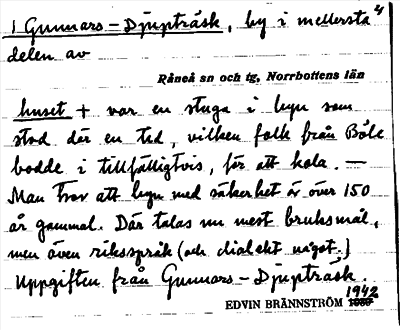 1 Gunnars-Djupträsk, by i mellersta 4
delen av
Råneå sn och tg, Norrbottens län
huset + var en stuga i byn som
stod där en tid, vilken folk från Böle
bodde i tillfälligtvis, för att kola. —
Man tror att byn med säkerhet är över 150
år gammal. Där talas nu mest bruksmål,
men även riksspråk (och dialekt något.)
Uppgiften från Gunnars-Djupträsk.
1942
EDVIN BRÄNNSTRÖM